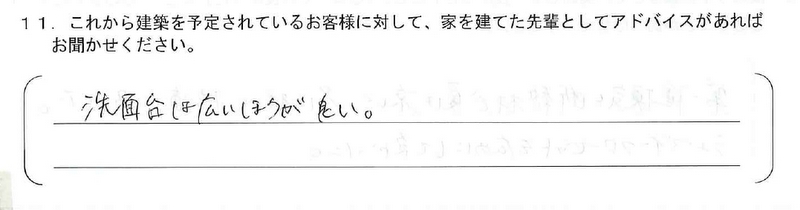 11. これから建築を予定されているお客様に対して、家を建てた先輩としてアドバイスがあれば
お聞かせください。
洗面台は広いほうが良い。